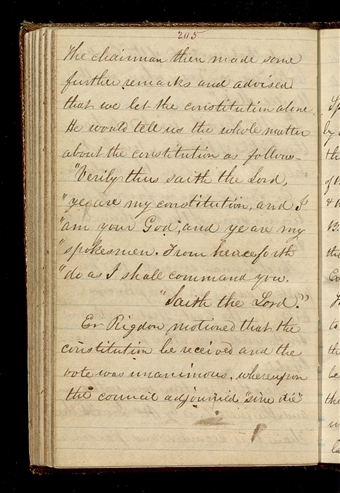 205
The chairman then made some
further remarks and advised
that we let the constitution alone
He would tell us the whole matter
about the constitution as follows—
"Verily thus saith the Lord,
"ye are my constitution, and I
"am your God, and ye are my
"spokesmen. From henceforth
"do as I shall command you.
"Saith the Lord."
Er Rigdon, motioned that the
constitution be received and the
vote was unanimous, whereupon
the council adjourned "sine die"